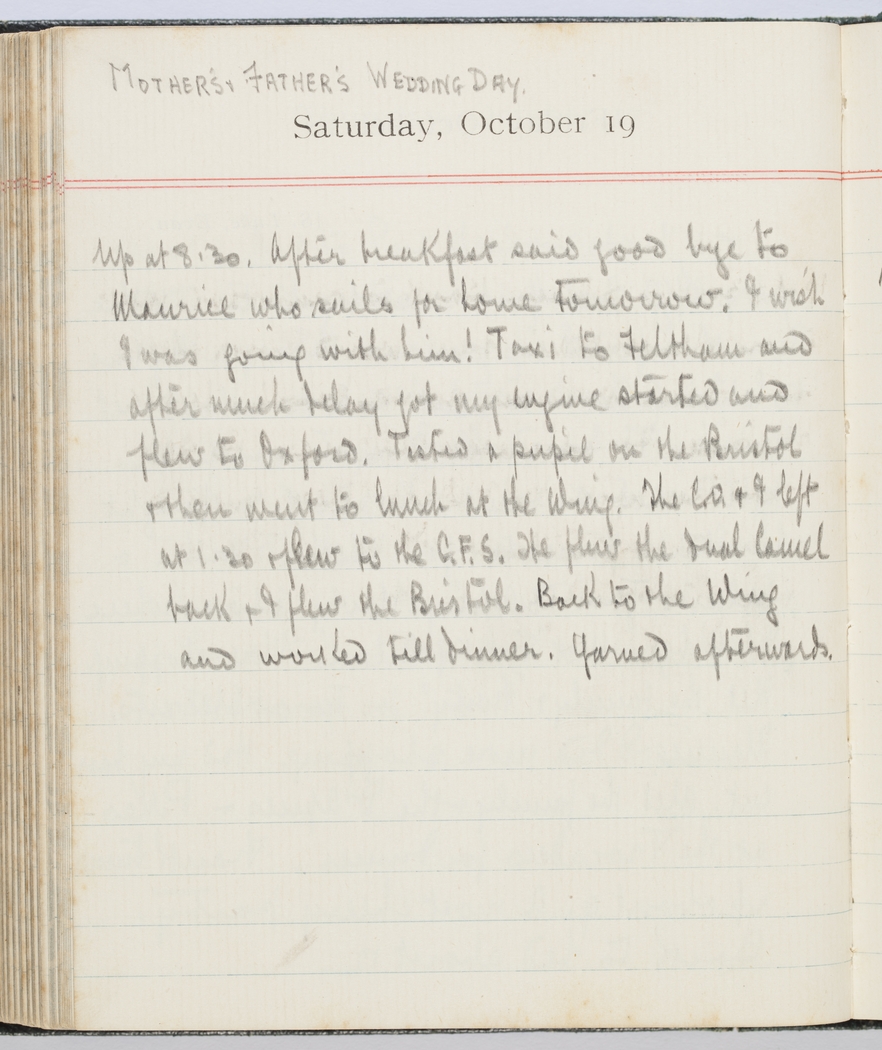 MOTHER'S & FATHER'S WEDDING DAY.
Saturday, October 19
Up at 8.30. After breakfast said good bye to
Maurice who sails for home tomorrow. I wish
I was going with him! Taxi to Feltham and
after much delay got my engine started and
flew to Oxford. Tested a pupil on the Bristol
& then went to lunch at the Wing. The C.O. & I left
at 1.30 & flew to the C.F.S. He flew the dual Camel
back & I flew the Bristol. Back to the Wing
and worked till dinner. Yarned afterwards.